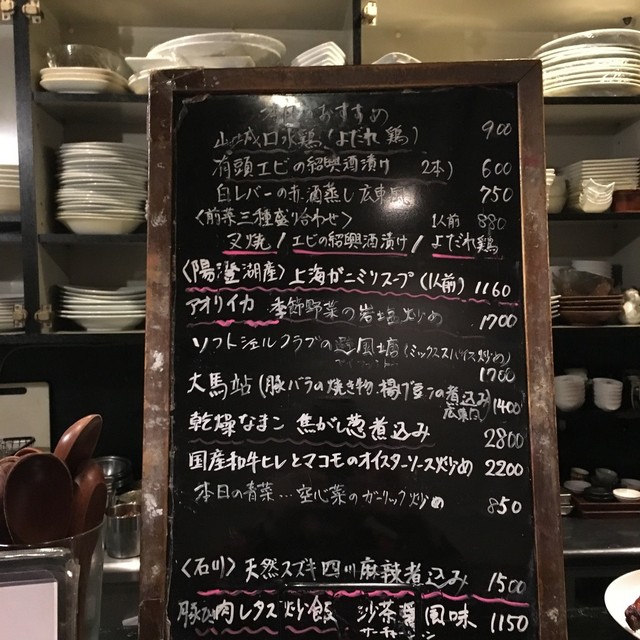 本日のおすすめ
山城口水鶏(よだれ鶏) 900
有頭エビの紹興酒漬け 2本) 600
白レバーの赤酒蒸し広東風 750
〈前菜三種盛り合わせ〉 1人前 880
叉焼/エビの紹興酒漬け/よだれ鶏
〈陽澄湖産〉上海ガニミソスープ(1人前) 1160
アオリイカ 季節野菜の岩塩炒め 1700
ソフトシェルクラブの避風塘(ミックススパイス炒め)
1700
大馬站(豚バラの焼き物・揚げ豆腐の煮込み)
広東風 1400
乾燥なまこ 焦がし葱煮込み 2800
国産和牛ヒレとマコモのオイスターソース炒め 2200
本日の青菜…空心菜のガーリック炒め 850
〈石川〉天然スズキ四川麻辣煮込み 1500
豚ひき肉レタス炒飯 沙茶醤風味 1150
サーチャージャン